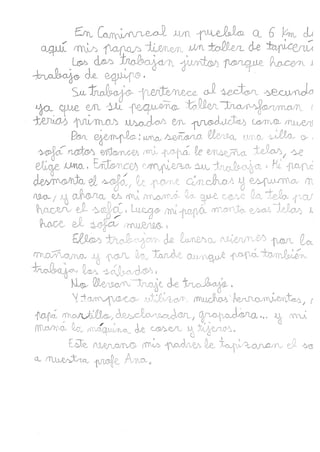 En Caminreal un pueblo a 6 Km d
aquí mis papas tienen un taller de tapicerí
Los dos trabajan juntos porque hacen
trabajo de equipo.
Su trabajo pertenece al sector secunda
ya que en su pequeño taller transforman
terias primas usadas en productos como nuev
Por ejemplo: una señora lleva una silla o
sofá rotos entonces mi papá le enseña telas, se
elige una. Entonces empieza su trabajo. Mi papá
desmonta el sofá, le pone cinchas y espuma n
va, y ahora es mi mamá la que cose la tela par
hacer el sofá. Luego mi papá monta esas telas e
hace el sofá nuevo.
Ellos trabajan de lunes a viernes por la
mañana y por la tarde aunque papá también
trabaja los sábados.
No llevan traje de trabajo.
Y tampoco utilizan muchas herramientas,
papá martillo, desclavador, grapadora... y mi
mamá la máquina de coser y tijeras.
Este verano mis padres le tapizaran el so
a nuestra profe Ana.